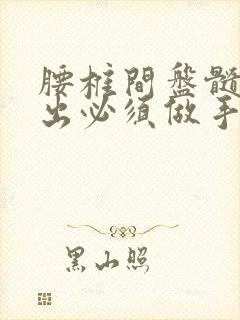 腰椎間盤髓
出必须做手
黑山照